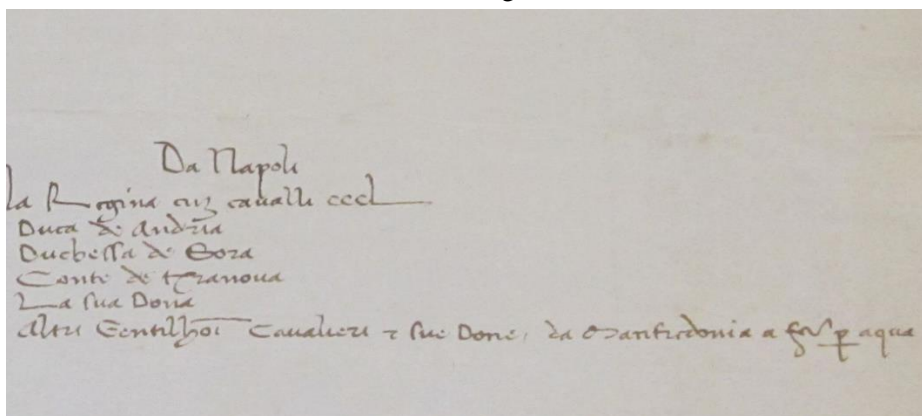 Da Napoli
La Regina cuz cavalli cccl
Duca de Andria
Duchessa de Sora
Conte de
La sua Dona
Altri Gentilhoi Cavalieri & sue Done, da Manfredonia a p aqua